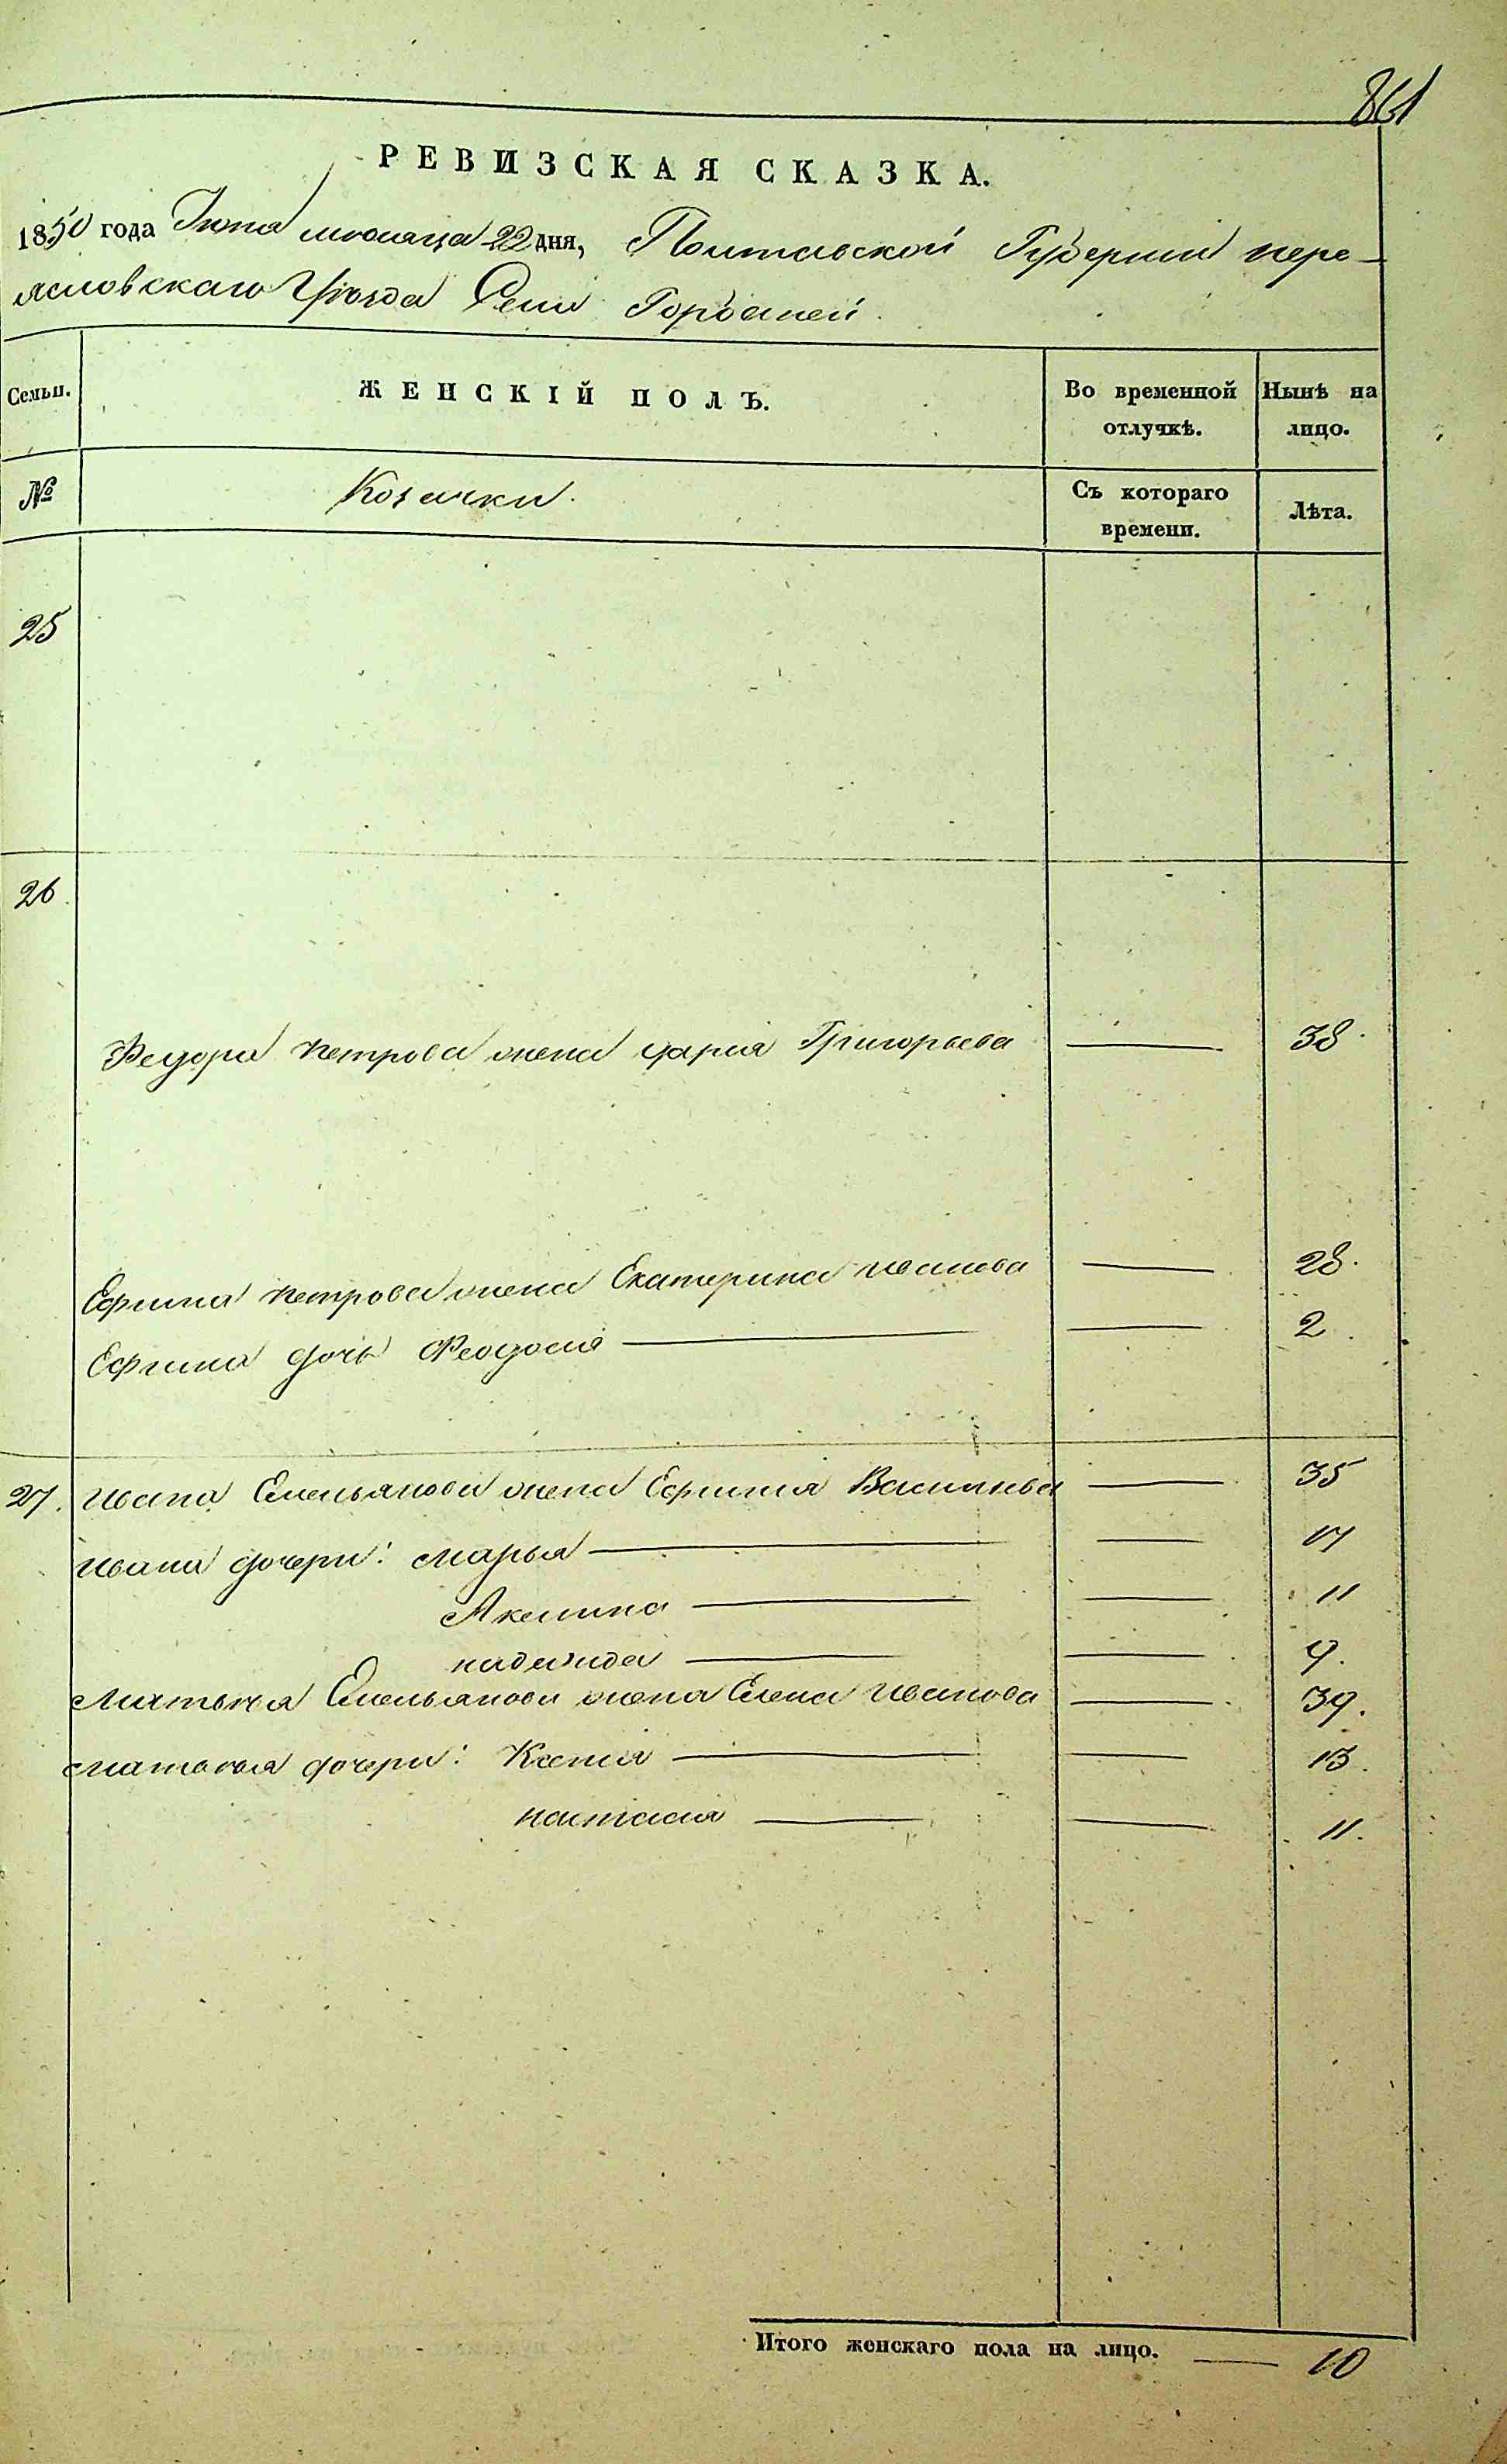 861
РЕВИЗСКАЯ СКАЗКА.
1850 года Июня месяца 22 дня, Полтавской Губернии пере-
яславскаго Уѣзда Села Горбаней.
Семьи. ЖЕНСКІЙ ПОЛЪ. Во временной отлучкѣ. Нынѣ на лицо.
№ Козачки. Съ котораго времени. Лѣта.
25
26
Федора петрова жена дарія Григорьева — 38.
Ефима петрова жена Екатерина иванова — 28.
Ефима дочь Феодосія — — 2.
27. ивана Емельянова жена Ефимія Васильева — 35
ивана дочери: марья — — 17
Акилина — — 11
надежда — — 9.
матвея Емельянова жена Елена иванова — 39.
матвея дочери: Ксенія — — 13.
настасія — — 11.
Итого женскаго пола на лицо. — 10